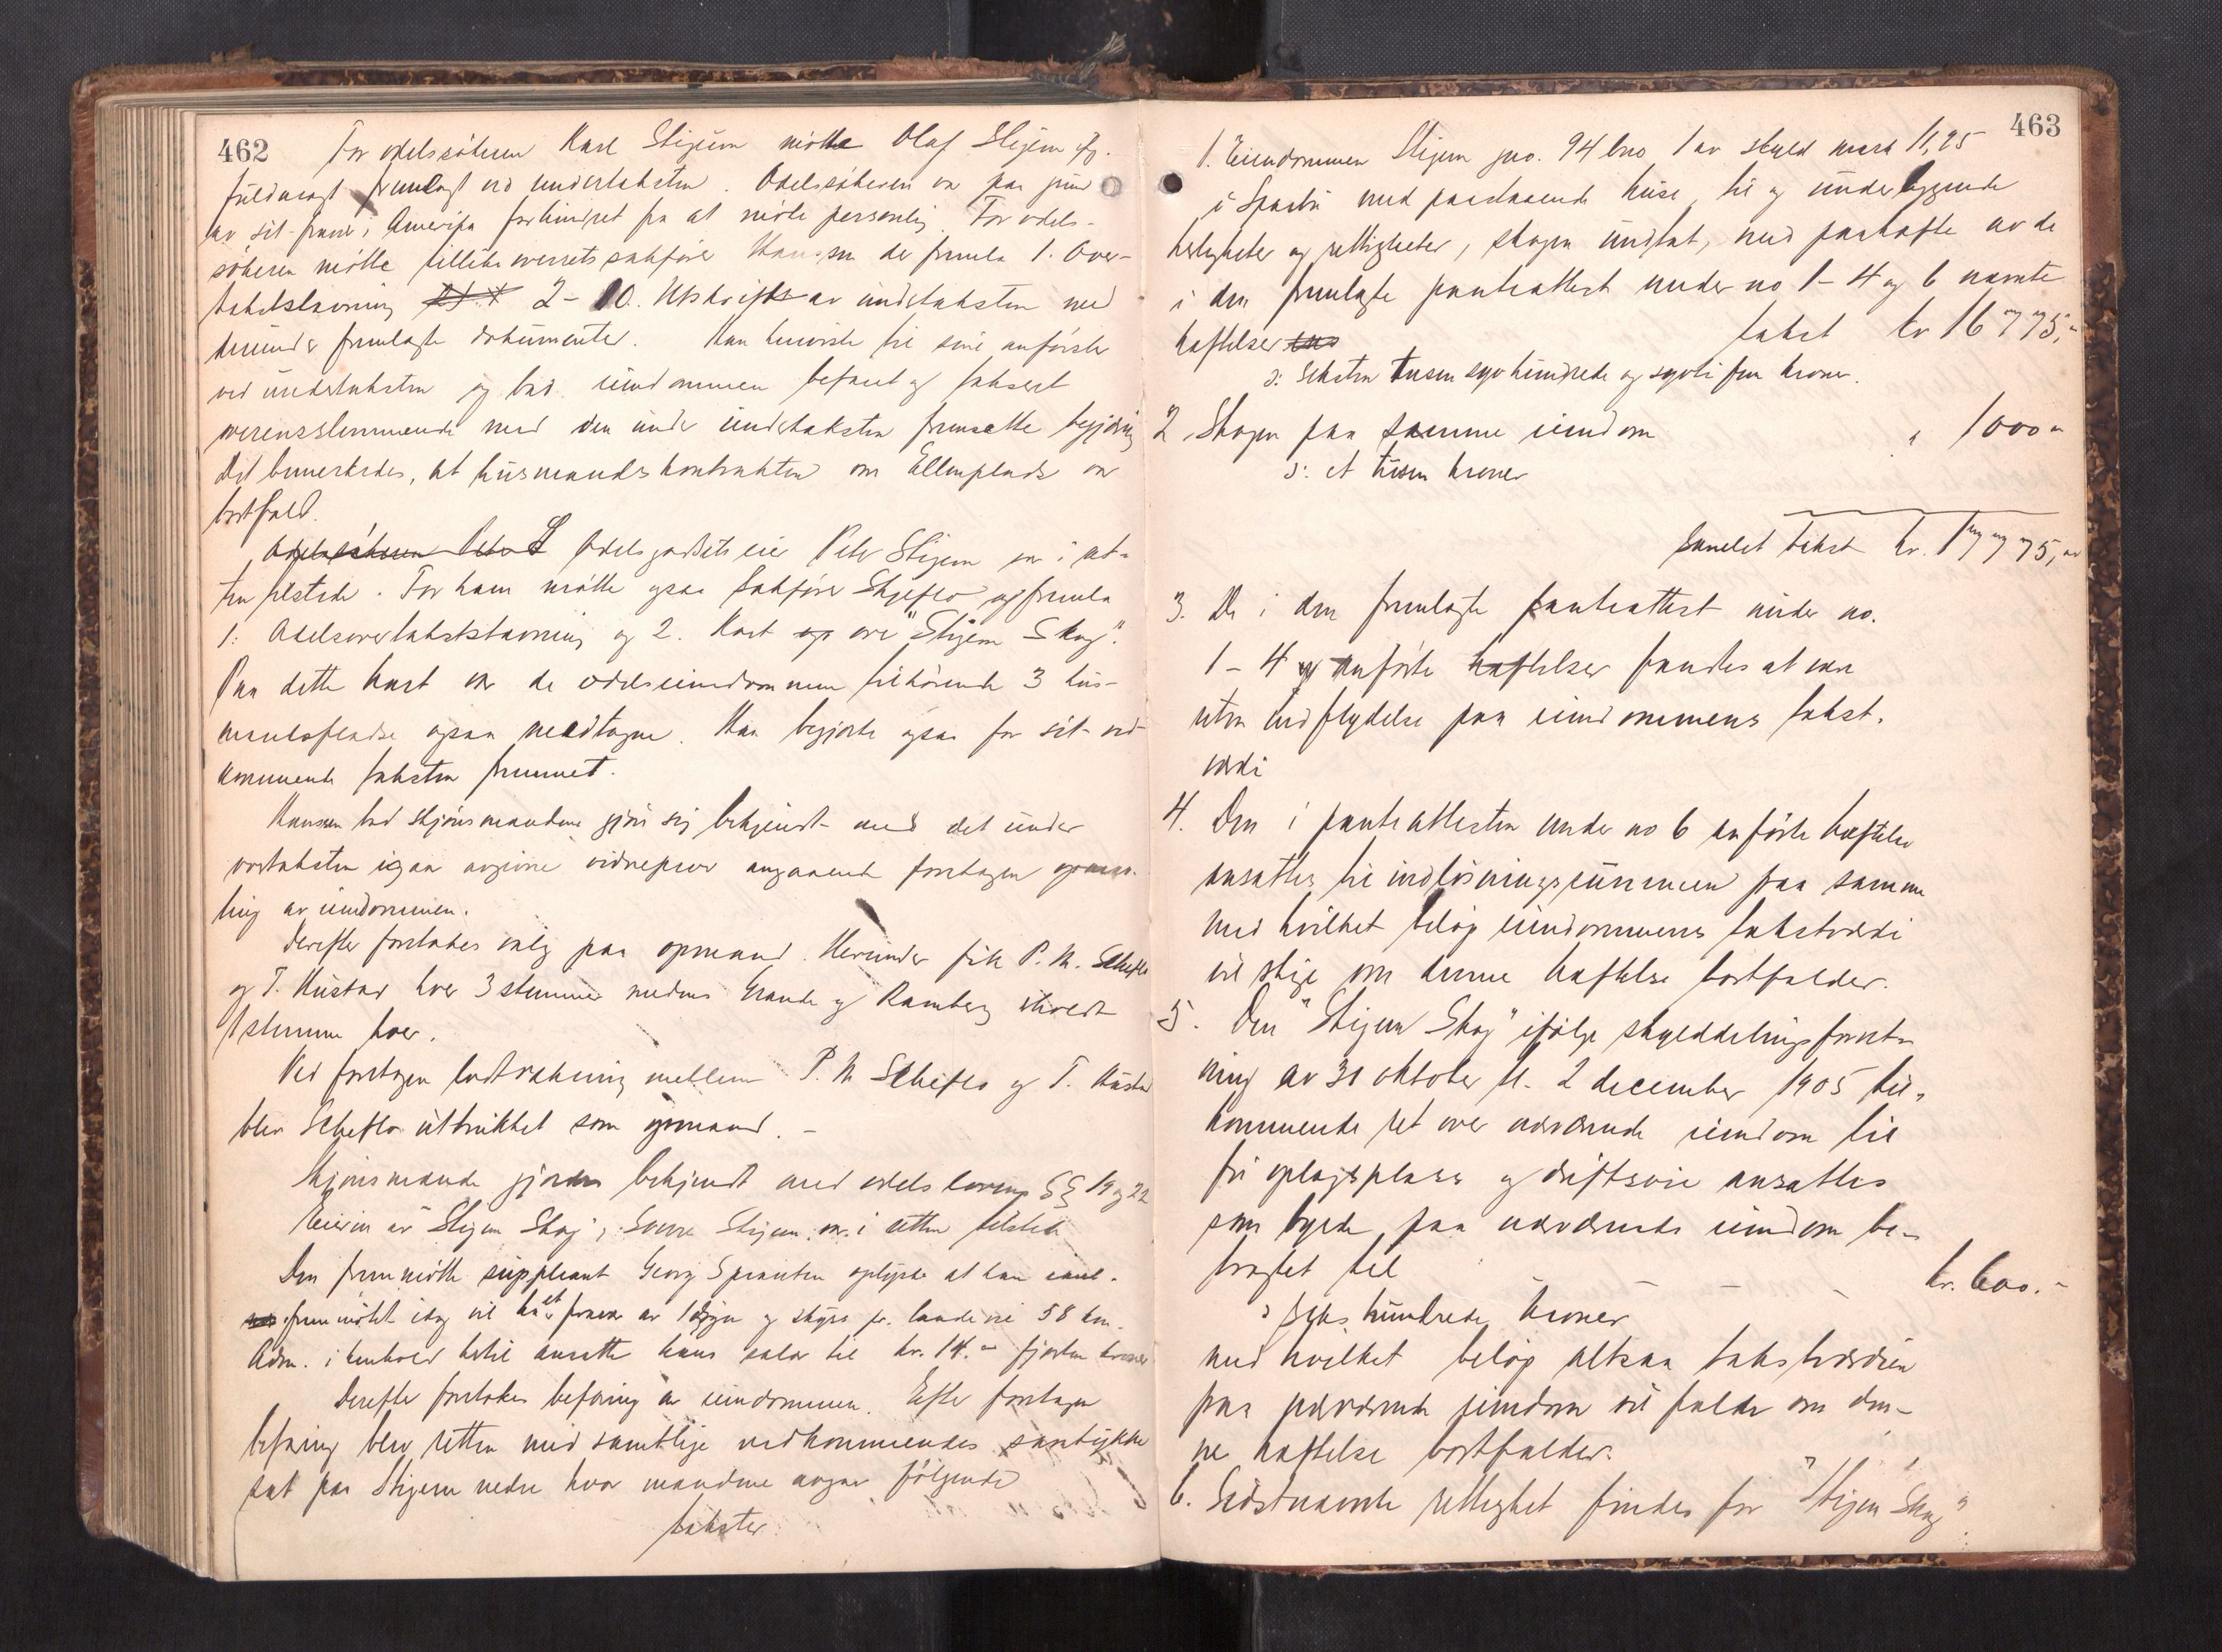 462
For odelssøkeren Karl Stigum møtte Olaf Stigum ifg.
fuldmagt fremlagt ved undertaksten. Odelssøkeren var paa grund
av sit fravær i Amerika forhindret fra at møte personlig. For odels-
søkeren møtte tillike overretssakfører Hanssen der fremla 1. Over-
takststevning 2 - 10. Utskrift av undertaksten med
herunder fremlagte dokumenter. Han henviste til sine anførsler
ved undertaksten og bad eiendommen befaret og taksert
overensstemmende med den under undertaksten fremsatte begjæring
Det bemerkedes, at husmandskontrakten om Ellenplads var
bortfald.
Odelssøkeren Peter S Odelsgodsets eier Peter Stigum var i ret-
ten tilstede. For ham møtte ogsaa sakfører Skjeflo og fremla
1: Odelsovertakststevning og 2. Kart over "Stigum Skog".
Paa dette kart var de odelseiendommen tilhørende 3 hus-
mandspladse ogsaa medtagne. Han begjærte ogsaa for sit ved-
kommende taksten fremmet.
Hanssen bad skjønsmændene gjøre sig bekjendt med det under
overtaksten igaar avgivne vidneprov angaaende foretagen opmaa-
ling av eiendommen.
Derefter foretokes valg paa opmand. Herunder fik P. M. Scheflo
og T. Hustad hver 3 stemmer medens Grande og Ramberg erholdt
1 stemme hver.
Ved foretagen lodtrækning mellem P. M Scheflo og T. Hustad
blev Scheflo uttrukket som opmand. -
Skjønsmændene gjordes bekjendt med odelslovens §§ 19 og 22
Eieren av "Stigum Skog", Sverre Stigum, var i retten tilstede
Den fremmøtte suppleant Georg Sprauten oplyste at han
fremmøtet idag vil ha et fravær av 1 døgn og skyss pr. landevei 58 km.
Adm. i henhold hertil ansatte hans salær til kr. 14.- fjorten kroner
Derefter foretokes befaring av eiendommen. Efter foretagen
befaring blev retten med samtlige vedkommendes samtykke
sat paa Stigum nedre hvor mændene avgav følgende
takster
463
1. Eiendommen Stigum gno. 94 bno 1 av skyld mark 11,25
i Sparbu med paastaaende huse, til og underliggende
herligheter og rettigheter, skogen undtat, med paahefte av de
i den fremlagte panteattest under no 1 - 4 og 6 nævnte
heftelser
takst kr 16775,-
ɔ: Seksten tusen syv hundrede og sytti fem kroner.
2. Skogen paa samme eiendom " 1000 -
ɔ: et tusen kroner
Samlet takst kr. 17775,-
3. De i den fremlagte panteattest under no.
1 - 4 anførte heftelser fandtes at være
uten indflydelse paa eiendommens takst.
værdi
4. Den i panteattesten under no 6 anførte heftelse
ansattes til indløsningssummen paa samme
med hvilket beløp eiendommens takstværdi
vil stige om denne heftelse bortfalder.
5. Den "Stigum Skog" ifølge skylddelingsforret-
ning av 31 oktober tl. 2 december 1905 til-
kommende ret over nærværende eiendom til
fri oplagsplass og driftsvei ansattes
som byrde paa nærværende eiendom be-
tragtet til kr. 600.-
ɔ: seks hundrede kroner
med hvilket beløp altsaa takstværdien
paa nærværende eiendom vil falde om den-
ne heftelse bortfalder.
6. Sidstnævnte rettighet findes for "Stigum Skog"